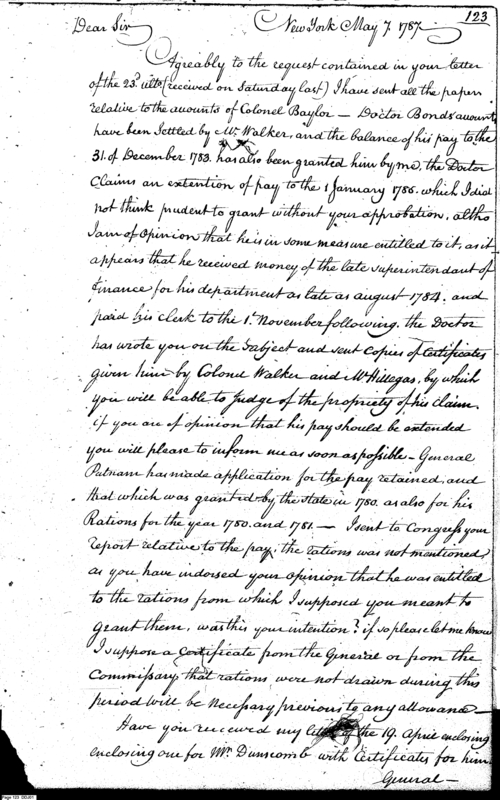 123
Dear Sir New York May 7. 1787.
Agreably to the request contained in your letter
of the 23d. ulto. (received on Saturday last) I have sent all the papers
relative to the amounts of Colonel Baylor — Doctor Bonds amounts
have been Settled by Mr. Walker, and the balance of his pay to the
31. of December 1783. has also been granted him by me, the Doctor
Claims an extention of pay to the 1 January 1786. which I did
not think prudent to grant without your approbation, altho
I am of Opinion that he is in some measure entitled to it, as it
appears that he received money of the late superintendant of
Finance for his department as late as august 1784. and
paid his clerk to the 1st. November following. the Doctor
has wrote you on the subject and sent Copies of Certificates
given him by Colonel Walker and Mr. Hillegas, by which
you will be able to Judge of the propriety of his claim.
if you are of opinion that his pay should be extended
you will please to inform me as soon as possible — General
Putnam has made application for the pay retained, and
that which was granted by the state in 1780. as also for his
Rations for the year 1780. and 1781. — I sent to Congress your
report relative to the pay, the rations was not mentioned
as you have indorsed your opinion that he was entitled
to the rations from which I supposed you meant to
grant them, was this your intention? if so please let me know
I suppose a Certificate from the General or from the
Commissary that rations were not drawn during this
period will be Necessary previous to any allowance —
Have you received my letter of the 19. April enclosing
enclosing one for Mr. Dunscomb with Certificates for him
General —
Page 123